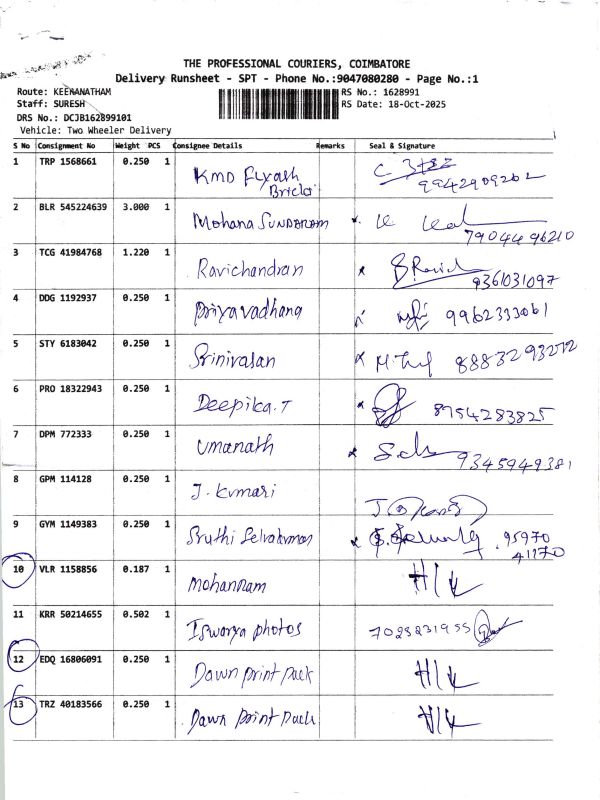 THE PROFESSIONAL COURIERS, COIMBATORE
Delivery Runsheet - SPT - Phone No.:9047080280 - Page No.:1
Route: KEERANATHAM
Staff: SURESH
DRS No.: DCJB162899101
Vehicle: Two Wheeler Delivery
RS No.: 1628991
RS Date: 18-Oct-2025
S No Consignment No Weight PCS Consignee Details Remarks Seal & Signature
1 TRP 1568661 0.250 1 KMD Flyash Bricks 9942909202
2 BLR 545224639 3.000 1 Mohana Sundaram 7904496210
3 TCG 41984768 1.220 1 Ravichandran 9361031097
4 DDG 1192937 0.250 1 Priyavadhana 9962333061
5 STY 6183042 0.250 1 Srinivasan
6 PRO 18322943 0.250 1 Deepika.T 8754283825
7 DPM 772333 0.250 1 Umanath 9345949381
8 GPM 114128 0.250 1 J. Kumari
9 GYM 1149383 0.250 1 Sruthi Selvakumar 95970
41170
10 VLR 1158856 0.187 1 Mohanram H/L
11 KRR 50214655 0.502 1 Iswarya photos 7025231955
12 EDQ 16806091 0.250 1 Dawn print pack H/L
13 TRZ 40183566 0.250 1 Dawn print pack H/L